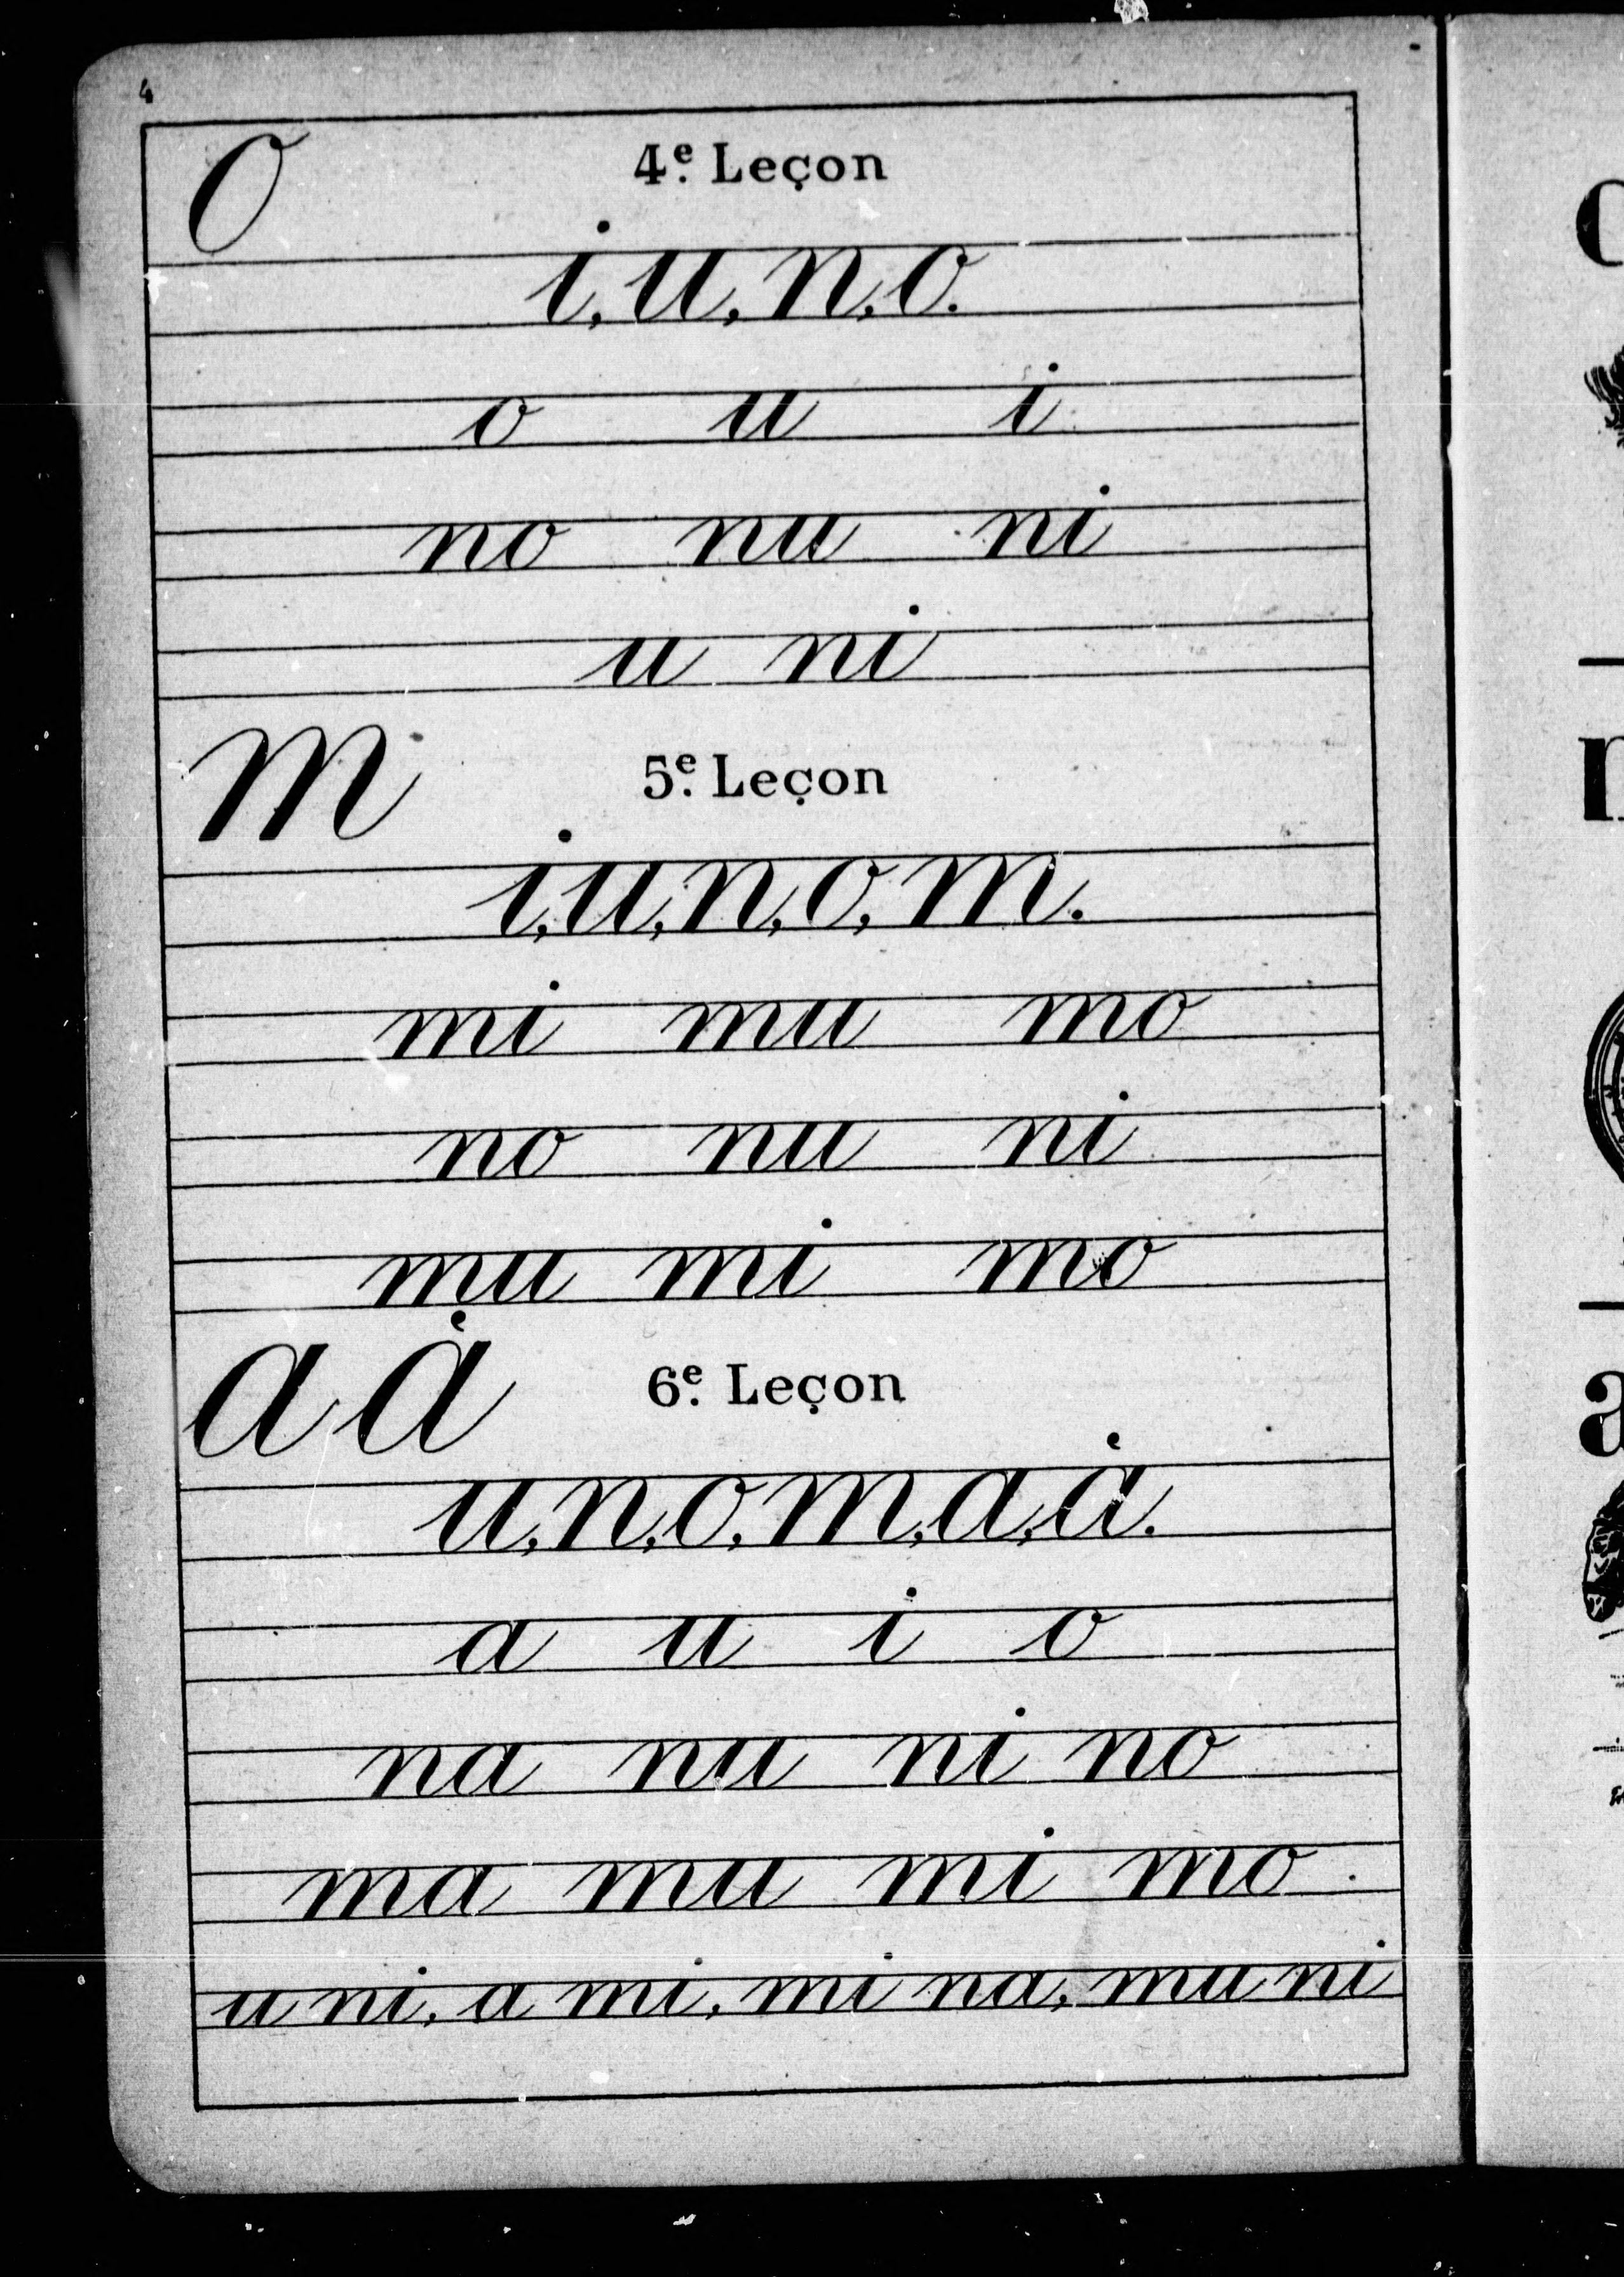 4
o 4e. Leçon
i, u, n, o.
o u i
no nu ni
u ni
m 5e. Leçon
i, u, n, o, m.
mi mu mo
no nu ni
mu mi mo
a à 6e. Leçon
u, n, o, m, a, à.
a u i o
na nu ni no
ma mu mi mo
u ni, a mi, mi na, mu ni